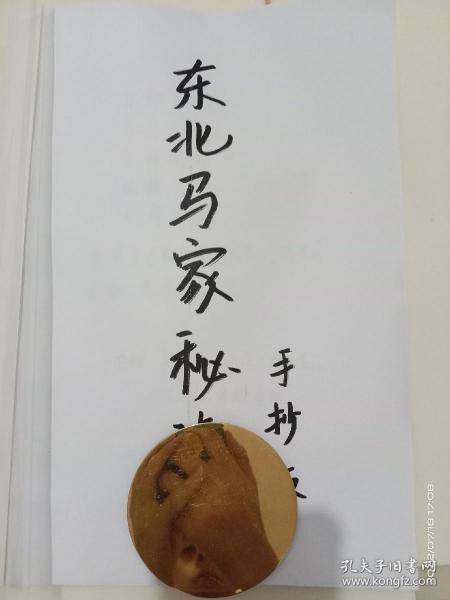 东北马家秘
手抄
孔夫子旧书网
www.kongfz.com
2/07/19 17:08